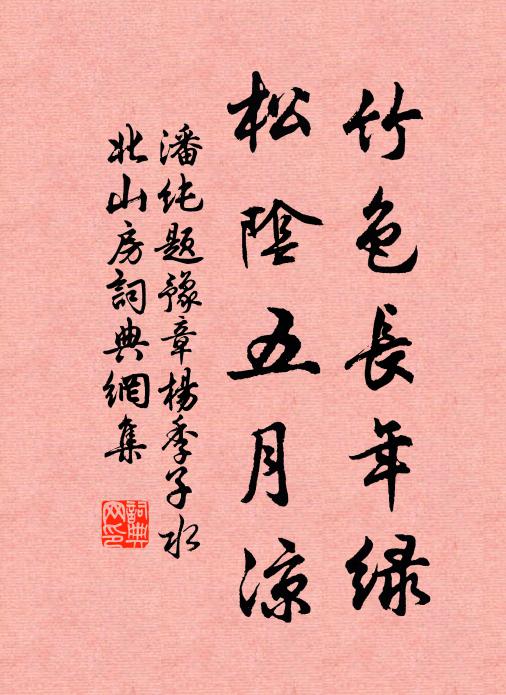 竹色長年緑
松陰五月涼
潘纯题豫章楊季子水
北山房詞典網集
詞典
网印